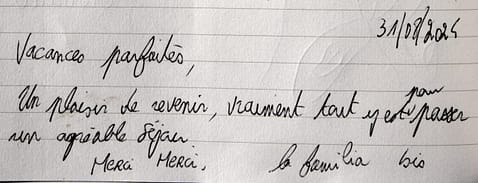 31/08/2024
Vacances parfaites,
Un plaisir de revenir, vraiment tout y est pour passer
un agréable séjour.
Merci Merci. la familia bis